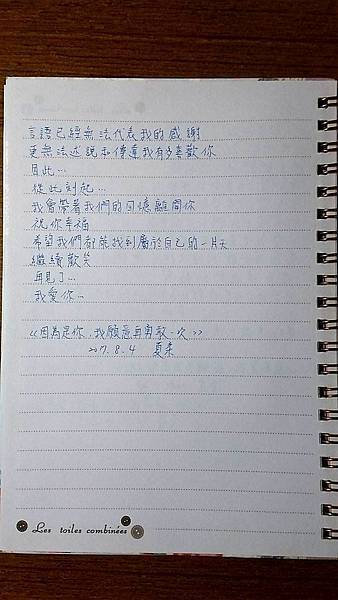 言語已經無法代表我的感謝
更無法述說和傳達我有多喜歡你
因此…
從此刻起…
我會帶著我們的回憶離開你
祝你幸福
希望我們都能找到屬於自己的一片天
繼續歡笑
再見了…
我愛你…
<<因為是你,我願意再勇敢一次>>
2017.8.4 夏柔
Les toiles combinées